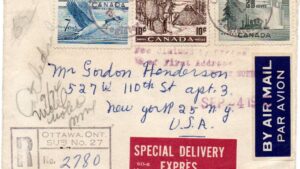 7¢
CANADA
10¢
CANADA
CANADA
Fee Claimed by Office
of First Address
Mr Gordon Henderson
527 W 110th St apt. 3.
New York 25 N.Y
U.S.A.
SEP 24 19
R
OTTAWA, ONT.
SUB No. 27
No. 2780
SPECIAL DELIVERY
EXPRES
BY AIR MAIL
PAR AVION